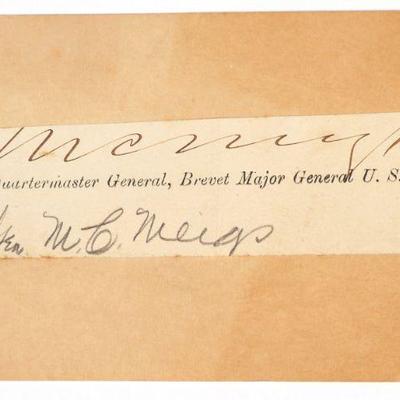 M C Meigs
Quartermaster General, Brevet Major General U. S.
Gen. M. C. Meigs